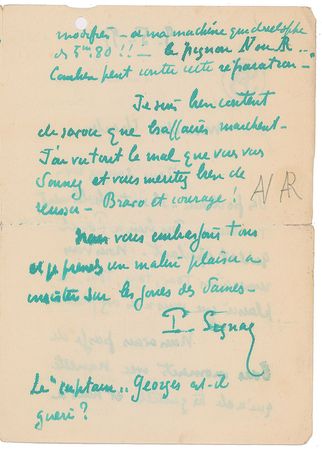 modifier - de ma machine qui développe
de 5m,80 !! - le pignon AV ou AR...
Combien peut coûter cette réparation -
Je suis bien content
de savoir que les affaires marchent -
J'ai vu tout le mal que vous vous
donnez et vous méritez bien de
réussir - Bravo et courage !
AV AR
Nous vous embrassons tous
et je prends un malin plaisir à
insister sur les joues des Dames -
P. Signac
Le "capitaine" Georges est-il
guéri ?